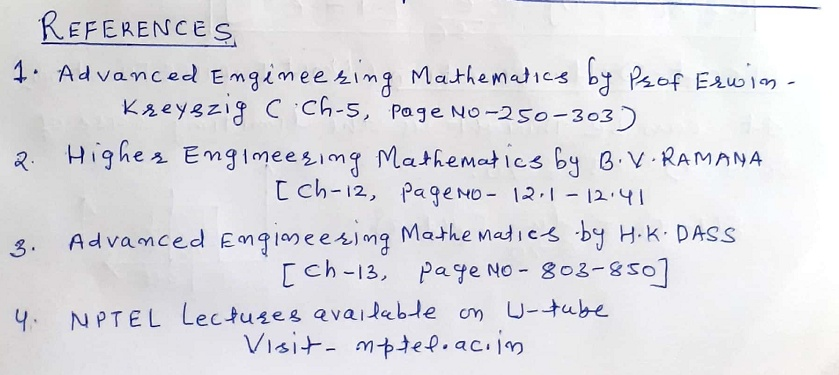 REFERENCES
1. Advanced Engineering Mathematics by Prof Erwin -
Kreyszig ( Ch-5, Page NO-250-303)
2. Higher Engineering Mathematics by B.V.RAMANA
[ Ch-12, Page NO- 12.1-12.41
3. Advanced Engineering Mathematics by H.K.DASS
[ Ch-13, Page NO- 803-850]
4. NPTEL Lectures available on U-tube
Visit- nptel.ac.in